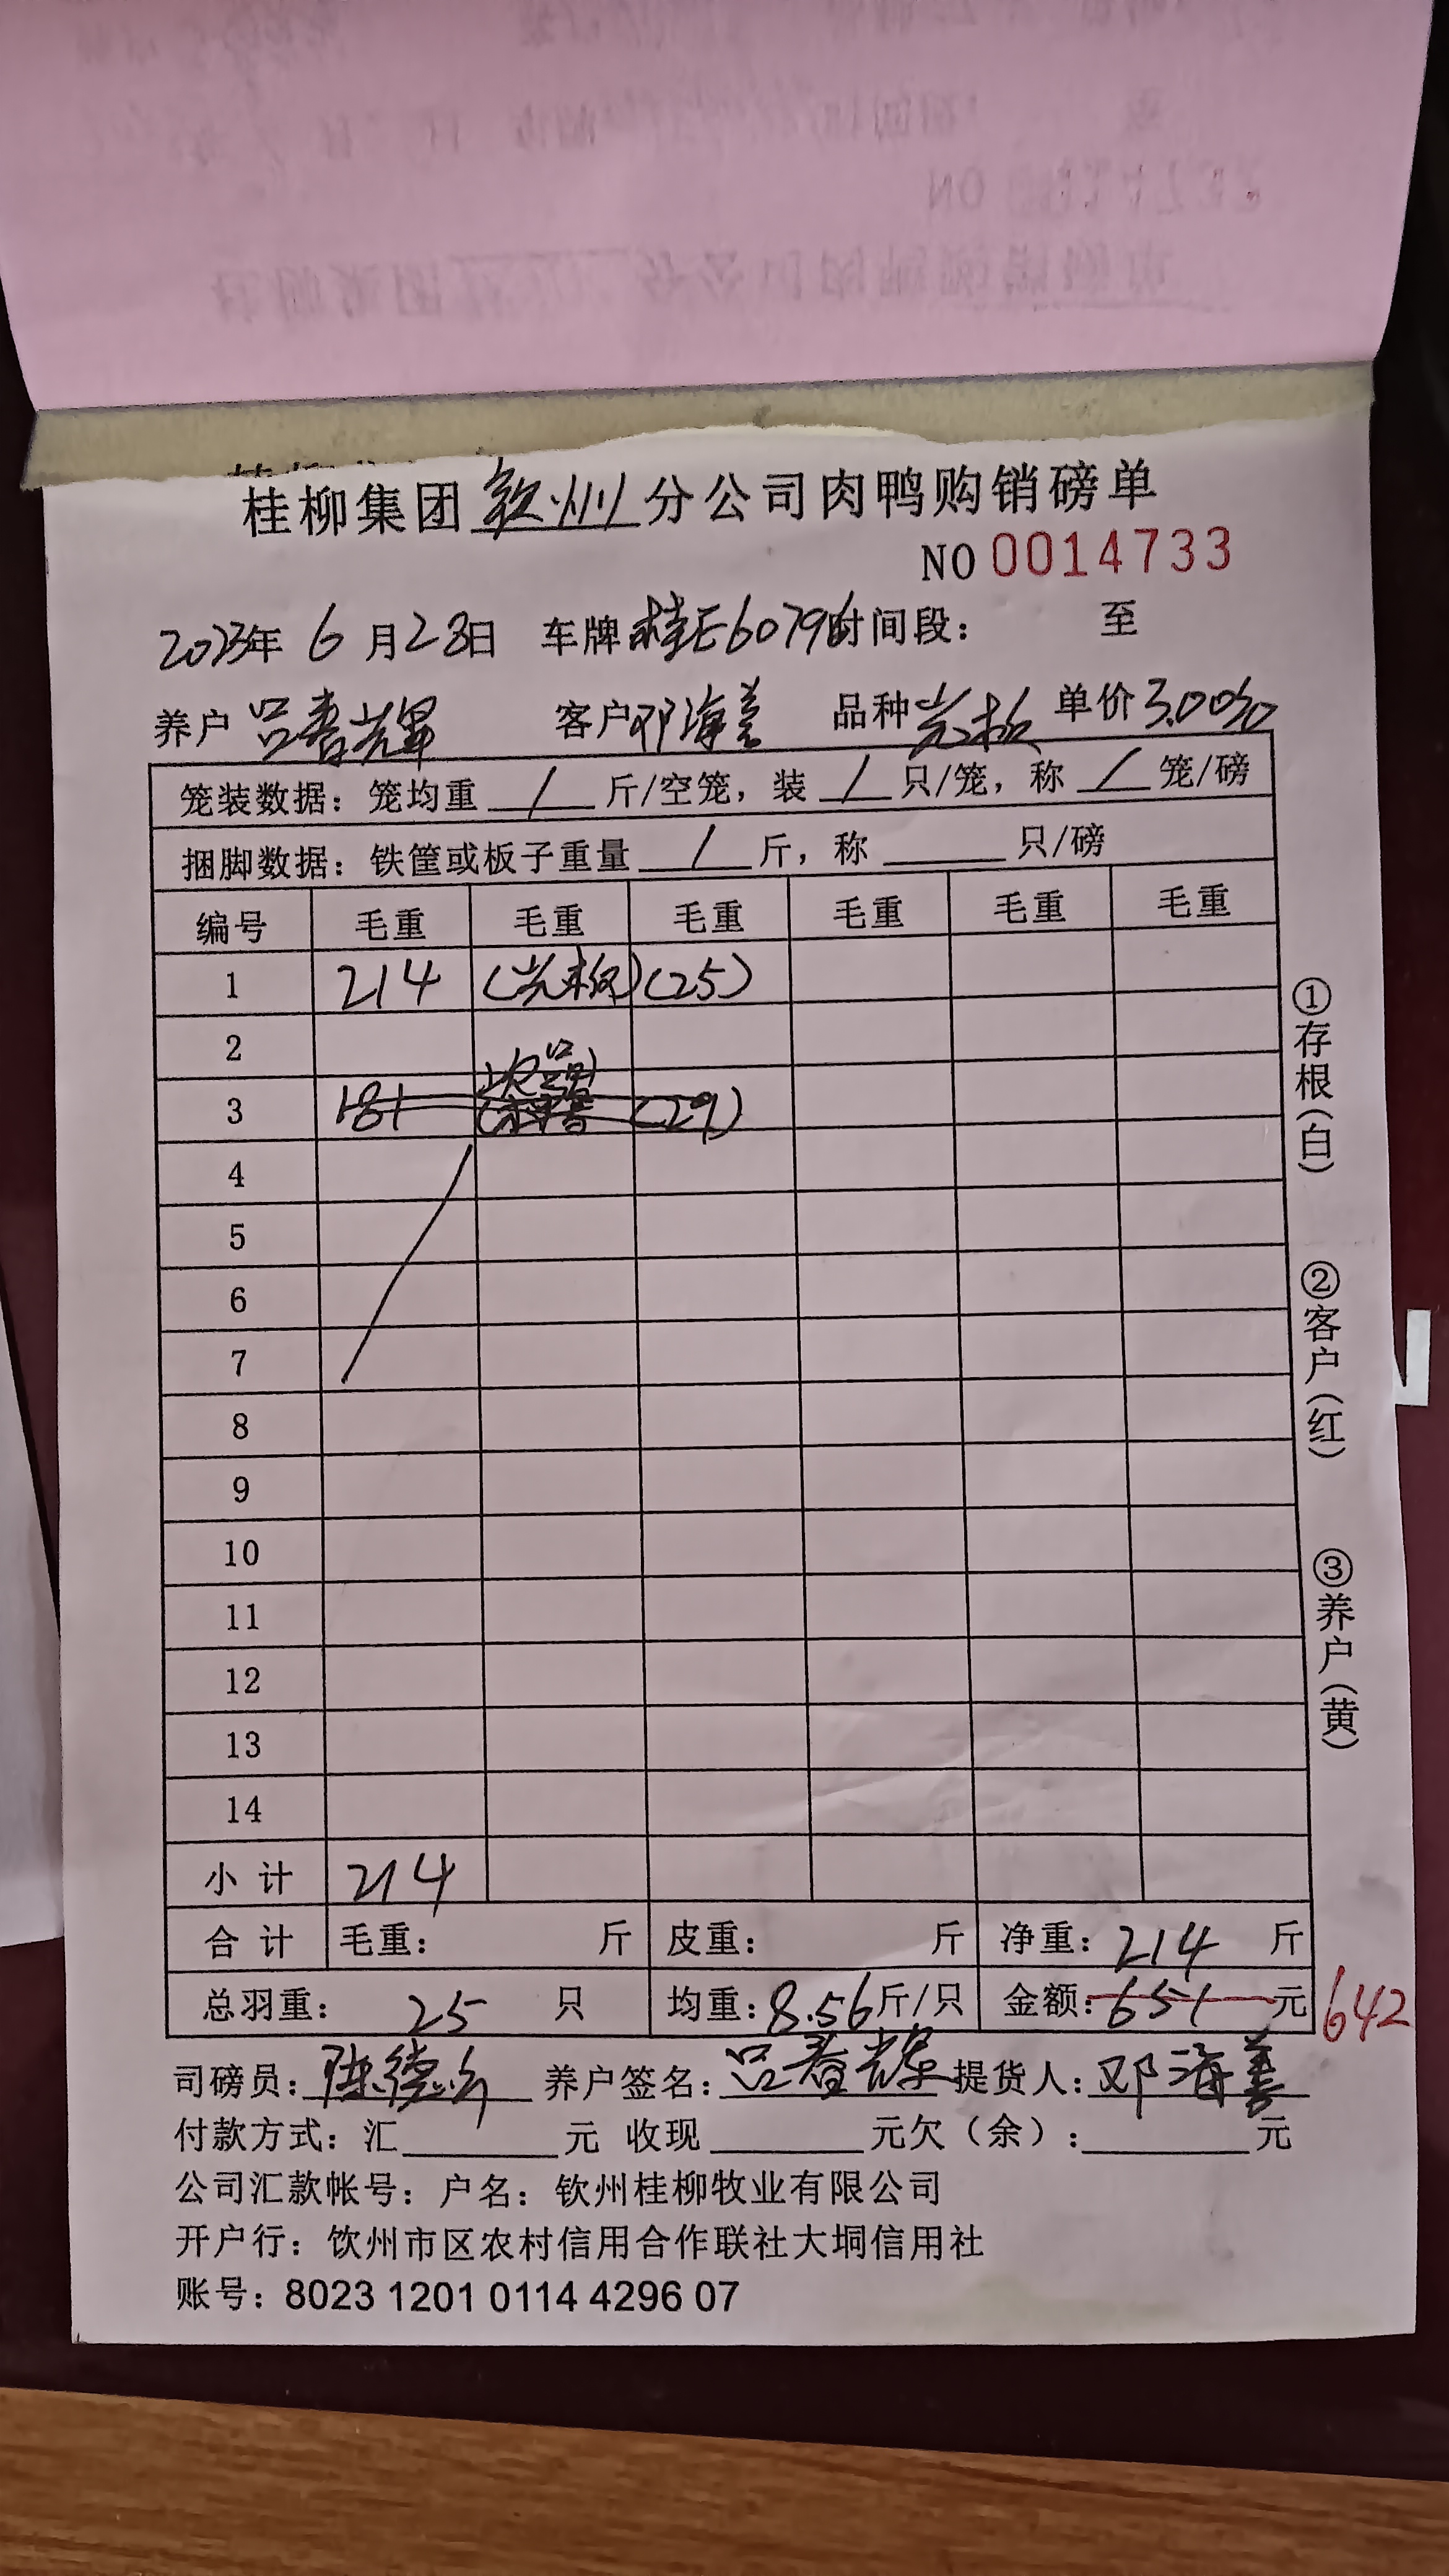 桂柳集团钦州分公司肉鸭购销磅单
NO 0014733
2023年 6 月28日 车牌桂E60796时间段： 至
养户 吕春辉 客户邓海善 品种 单价3.00元
笼装数据：笼均重 / 斤/空笼，装 / 只/笼，称 / 笼/磅
捆脚数据：铁筐或板子重量 / 斤，称 只/磅
编号 毛重 毛重 毛重 毛重 毛重 毛重
1 214 (25)
2
3 181 次品 (29)
4
5
6
7
8
9
10
11
12
13
14
小计 214
合计 毛重： 斤 皮重： 斤 净重：214 斤
总羽重： 25 只 均重：8.56斤/只 金额：651元 642
司磅员：陈德 养户签名：吕春辉 提货人：邓海善
付款方式：汇 元 收现 元欠（余）： 元
公司汇款帐号：户名：钦州桂柳牧业有限公司
开户行：饮州市区农村信用合作联社大垌信用社
账号：8023 1201 0114 4296 07
①存根（白）
②客户（红）
③养户（黄）